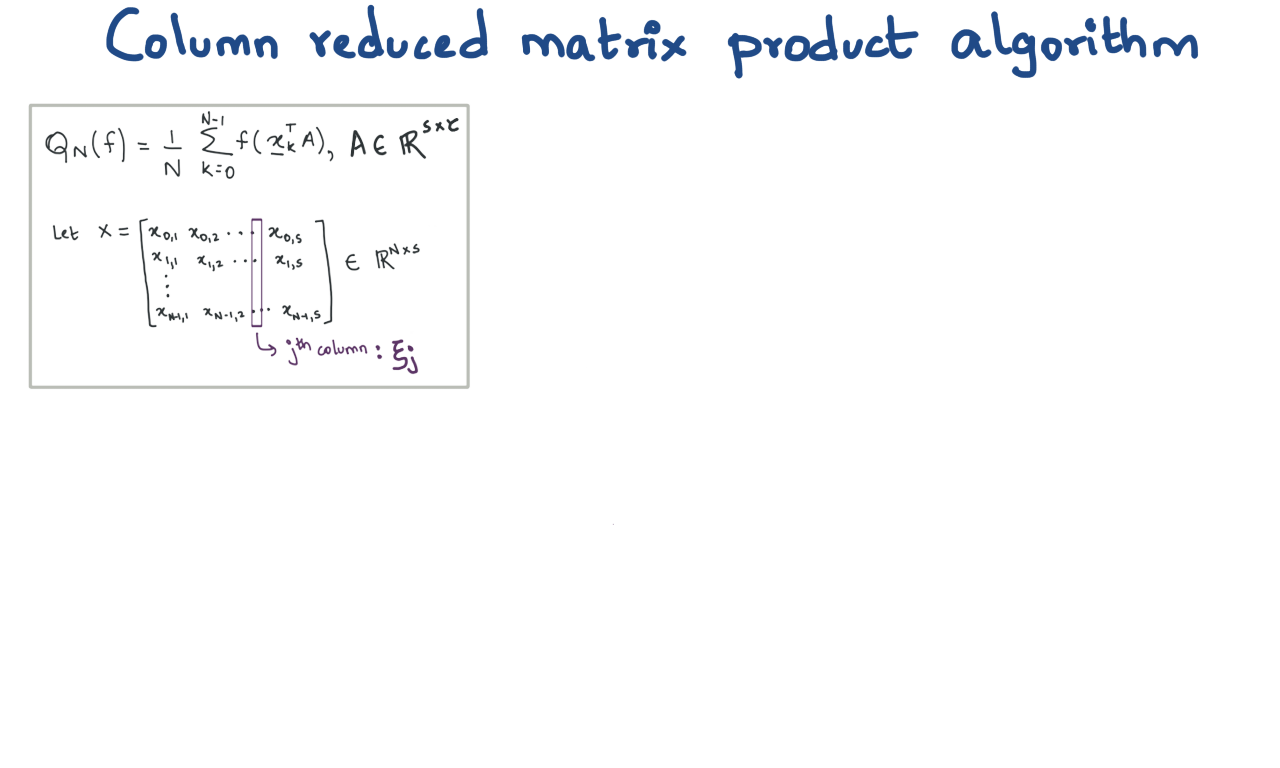 Column reduced matrix product algorithm
Q_N(f) = 1/N ∑_{k=0}^{N-1} f(x_k^T A), A ∈ ℝ^{s×τ}
Let X = [x_{0,1} x_{0,2} ··· x_{0,s}
x_{1,1} x_{1,2} ··· x_{1,s}
⋮
x_{N-1,1} x_{N-1,2} ··· x_{N-1,s}] ∈ ℝ^{N×s}
↳ jth column : ξ_j